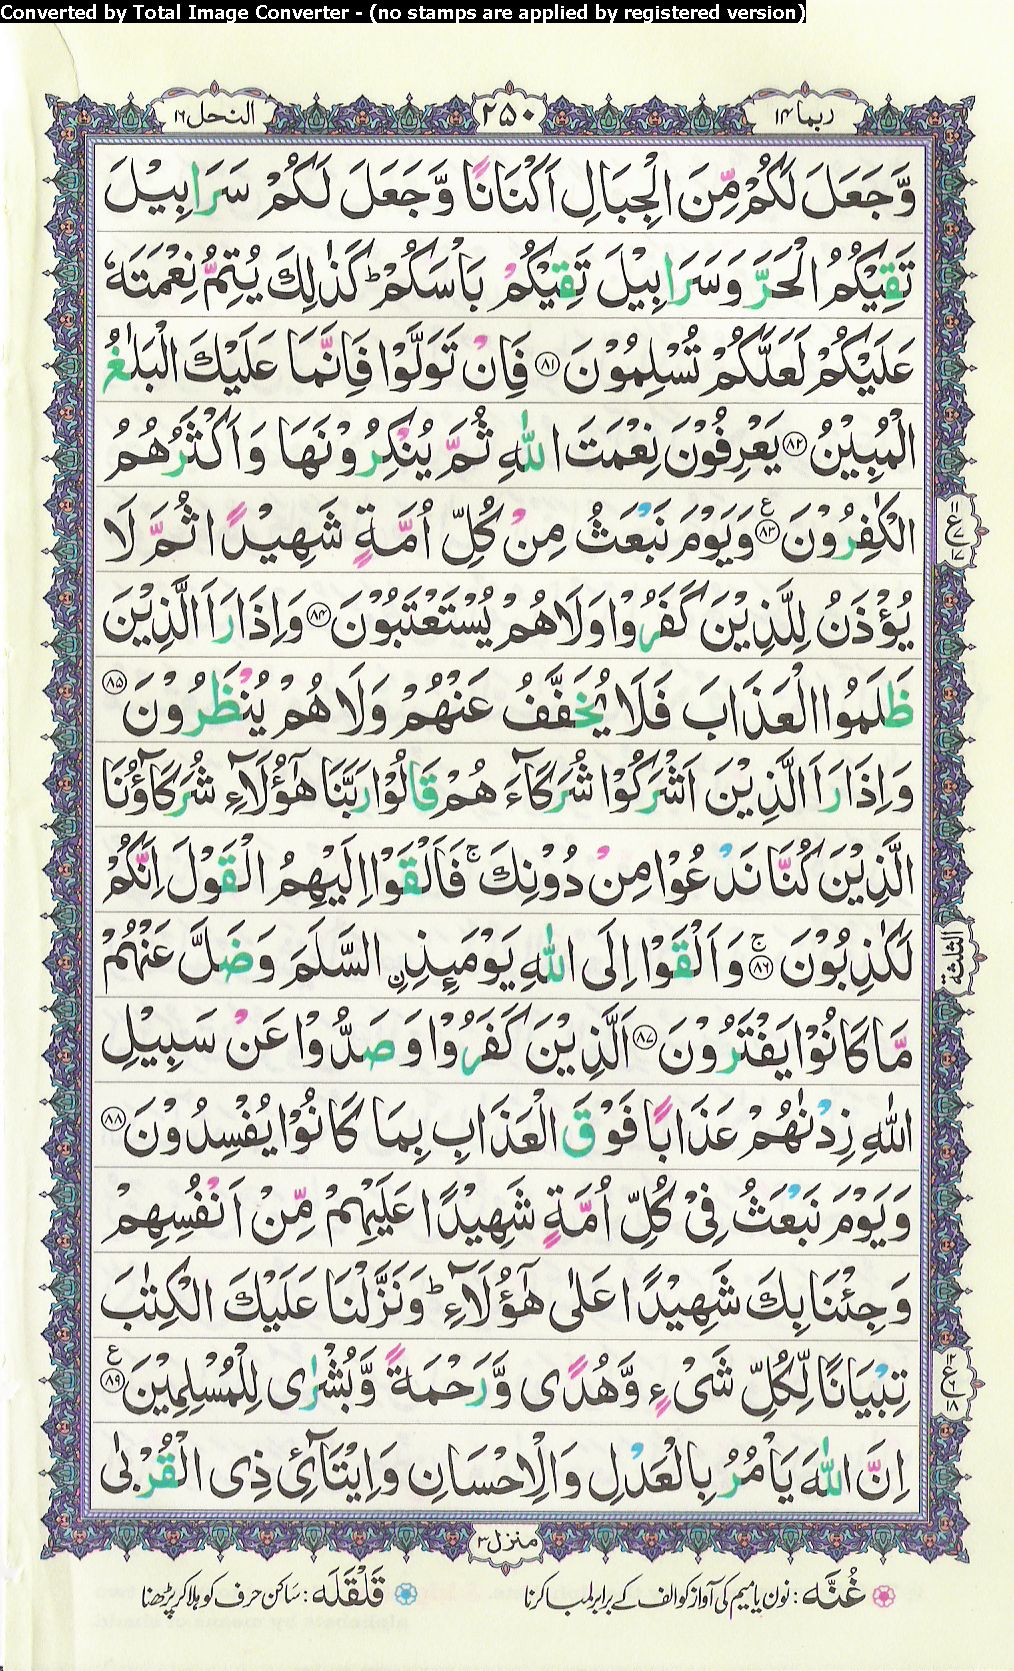 Converted by Total Image Converter - (no stamps are applied by registered version)
ربما ۱۴
۲۵۰
النحل ۱۶
وَّجَعَلَ لَكُمْ مِّنَ الْجِبَالِ اَكْنَانًا وَّجَعَلَ لَكُمْ سَرَابِيْلَ
تَقِيْكُمُ الْحَرَّ وَسَرَابِيْلَ تَقِيْكُمْ بَاْسَكُمْ ؕ كَذٰلِكَ يُتِمُّ نِعْمَتَهٗ
عَلَيْكُمْ لَعَلَّكُمْ تُسْلِمُوْنَ ۸۱ فَاِنْ تَوَلَّوْا فَاِنَّمَا عَلَيْكَ الْبَلٰغُ
الْمُبِيْنُ ۸۲ يَعْرِفُوْنَ نِعْمَتَ اللّٰهِ ثُمَّ يُنْكِرُوْنَهَا وَاَكْثَرُهُمُ
الْكٰفِرُوْنَ ۸۳ ع وَيَوْمَ نَبْعَثُ مِنْ كُلِّ اُمَّةٍ شَهِيْدًا ثُمَّ لَا
۱۱ ع ۷ ۱۷
يُؤْذَنُ لِلَّذِيْنَ كَفَرُوْا وَلَا هُمْ يُسْتَعْتَبُوْنَ ۸۴ وَاِذَا رَاَ الَّذِيْنَ
ظَلَمُوا الْعَذَابَ فَلَا يُخَفَّفُ عَنْهُمْ وَلَا هُمْ يُنْظَرُوْنَ ۸۵
وَاِذَا رَاَ الَّذِيْنَ اَشْرَكُوْا شُرَكَآءَ هُمْ قَالُوْا رَبَّنَا هٰٓؤُلَآءِ شُرَكَآؤُنَا
الَّذِيْنَ كُنَّا نَدْعُوْا مِنْ دُوْنِكَ ۚ فَاَلْقَوْا اِلَيْهِمُ الْقَوْلَ اِنَّكُمْ
لَكٰذِبُوْنَ ۸۶ ۚ وَاَلْقَوْا اِلَى اللّٰهِ يَوْمَئِذِ ۨالسَّلَمَ وَضَلَّ عَنْهُمْ
الثلثة
مَّا كَانُوْا يَفْتَرُوْنَ ۸۷ اَلَّذِيْنَ كَفَرُوْا وَصَدُّوْا عَنْ سَبِيْلِ
اللّٰهِ زِدْنٰهُمْ عَذَابًا فَوْقَ الْعَذَابِ بِمَا كَانُوْا يُفْسِدُوْنَ ۸۸
وَيَوْمَ نَبْعَثُ فِىْ كُلِّ اُمَّةٍ شَهِيْدًا عَلَيْهِمْ مِّنْ اَنْفُسِهِمْ
وَجِئْنَا بِكَ شَهِيْدًا عَلٰى هٰٓؤُلَآءِ ؕ وَنَزَّلْنَا عَلَيْكَ الْكِتٰبَ
تِبْيَانًا لِّكُلِّ شَىْءٍ وَّهُدًى وَّرَحْمَةً وَّبُشْرٰى لِلْمُسْلِمِيْنَ ۸۹ ع
۱۲ ع ۶ ۱۸
اِنَّ اللّٰهَ يَاْمُرُ بِالْعَدْلِ وَالْاِحْسَانِ وَاِيْتَآئِ ذِى الْقُرْبٰى
منزل ۳
غُنَّه: نون یا میم کی آواز کو الف کے برابر لمبا کرنا
قَلْقَلَه: ساکن حرف کو ہلا کر پڑھنا